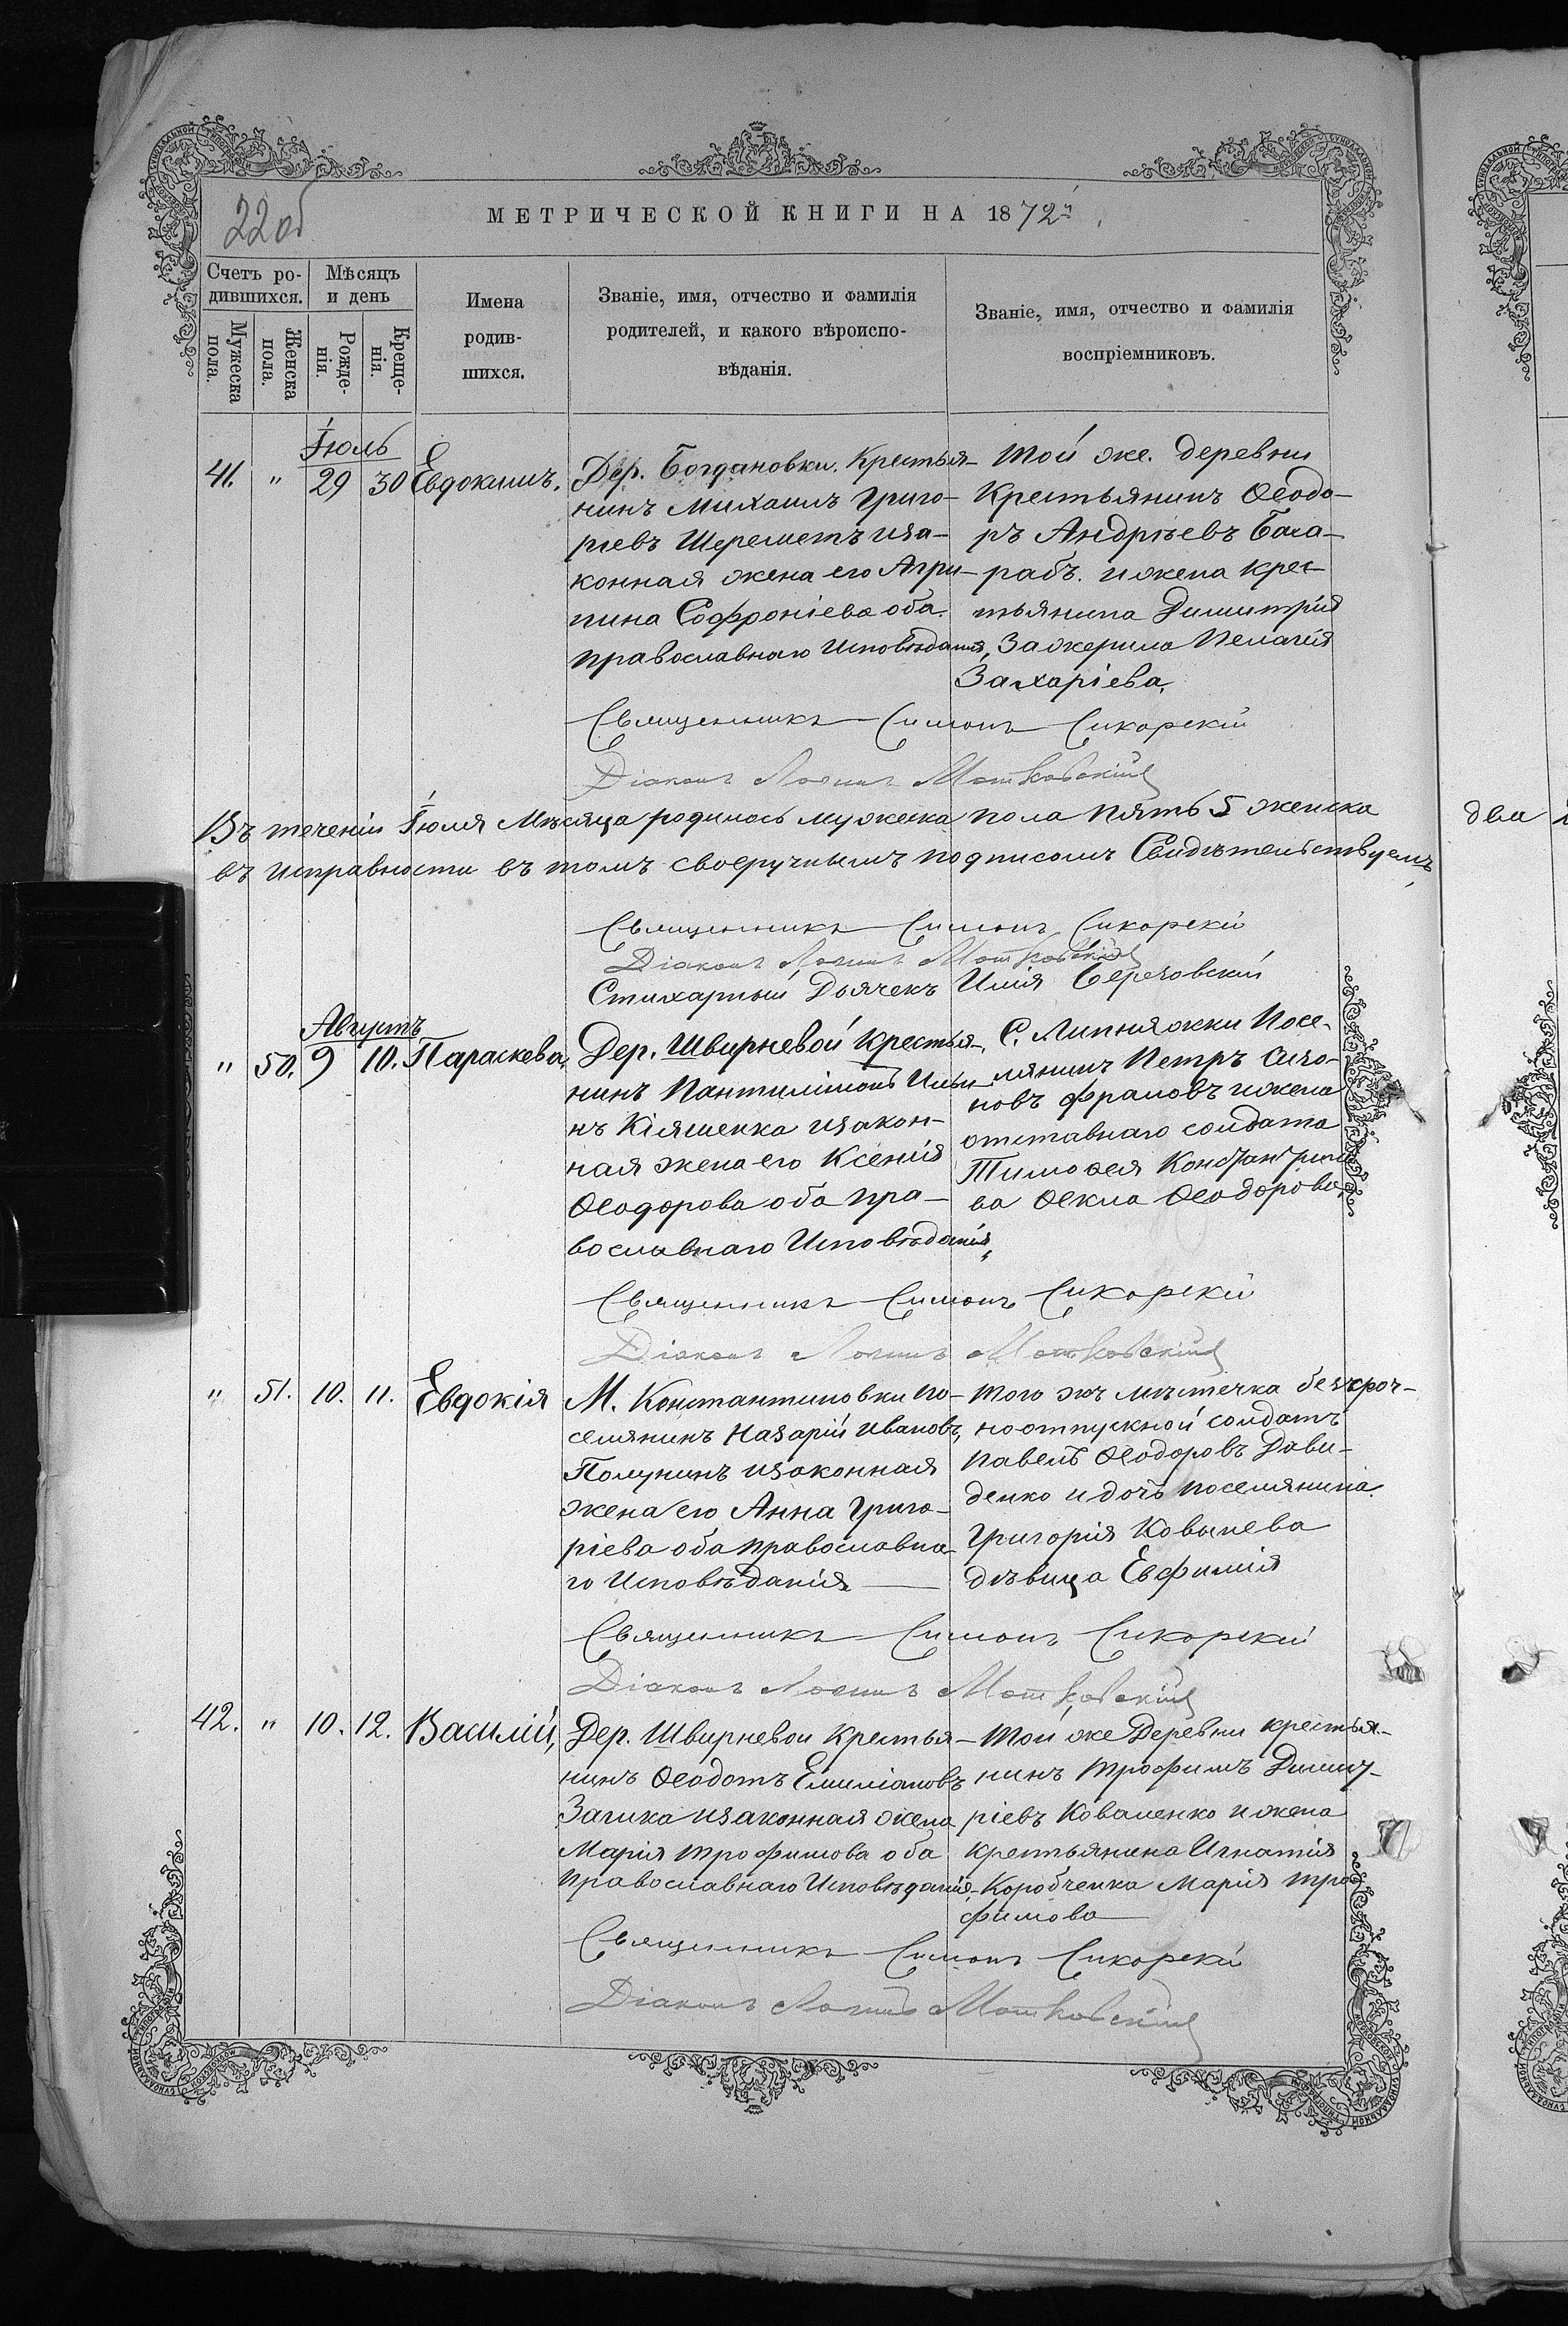 22 об
МЕТРИЧЕСКОЙ КНИГИ НА 1872й
Счетъ ро-
дившихся.
Мѣсяцъ
и день
Мужеска
пола.
Женска
пола.
Рожде-
нія.
Креще-
нія.
Имена
родив-
шихся.
Званіе, имя, отчество и фамилія
родителей, и какого вѣроиспо-
вѣданія.
Званіе, имя, отчество и фамилія
воспріемниковъ.
Іюль
41. " 29 30 Евдокимъ.
Дер. Богдановки. Крестья-
нинъ Михаилъ Григо-
риевъ Шереметъ иза-
конная жена его Агри-
пина Софроніева оба
православнаго Исповѣданія,
Той же. деревни
Крестьянинъ Ѳеодо-
ръ Андріевъ
рабъ. и жена крес-
тьянина Димитрія
Пелагія
Захаріева.
Священникъ Симонъ Сикорскій
Діаконъ Мотковскій
Въ теченіи Іюля Мѣсяца родилось мужеска пола пять 5 женска
въ исправности въ томъ своеручнымъ подписомъ Свидѣтельствуемъ
два
Священникъ Симонъ Сикорскій
Діаконъ Мотковскій
Стихарный Дьячекъ Илія
Августъ
" 50. 9 10. Параскева,
Дер. Швырневой Крестья-
нинъ Пантилімонъ Ильи
нъ Кіяшенка изакон-
ная жена его Ксенія
Ѳеодорова оба пра-
вославнаго Исповѣданія,
С. Липняжки Посе-
лянинъ Петръ
новъ и жена
отставнаго солдата
Тимоѳея Константино
ва Ѳекла Ѳеодорова,
Священникъ Симонъ Сикорскій
Діаконъ Мотковскій
" 51. 10. 11. Евдокія
М. Константиновки по-
селянинъ Назарій Ивановъ,
Полунинъ изаконная
жена его Анна Григо-
ріева оба православна-
го Исповѣданія
того жъ мѣстечка безсроч-
ноотпускной солдатъ
Павелъ Ѳеодоровъ Дави-
денко и дочь поселянина
Григорія Ковылева
дѣвица Евфимія
Священникъ Симонъ Сикорскій
Діаконъ Мотковскій
42. " 10. 12. Василій,
Дер. Швырневой Крестья-
нинъ Ѳеодотъ Емиліановъ
Заика изаконная жена
Марія Трофимова оба
православнаго Исповѣданія
Той же Деревни крестья-
нинъ Трофимъ Димит-
ріевъ Коваленко и жена
крестьянина Игнатія
Коробченка Марія Тро
фимова
Священникъ Симонъ Сикорскій
Діаконъ Мотковскій